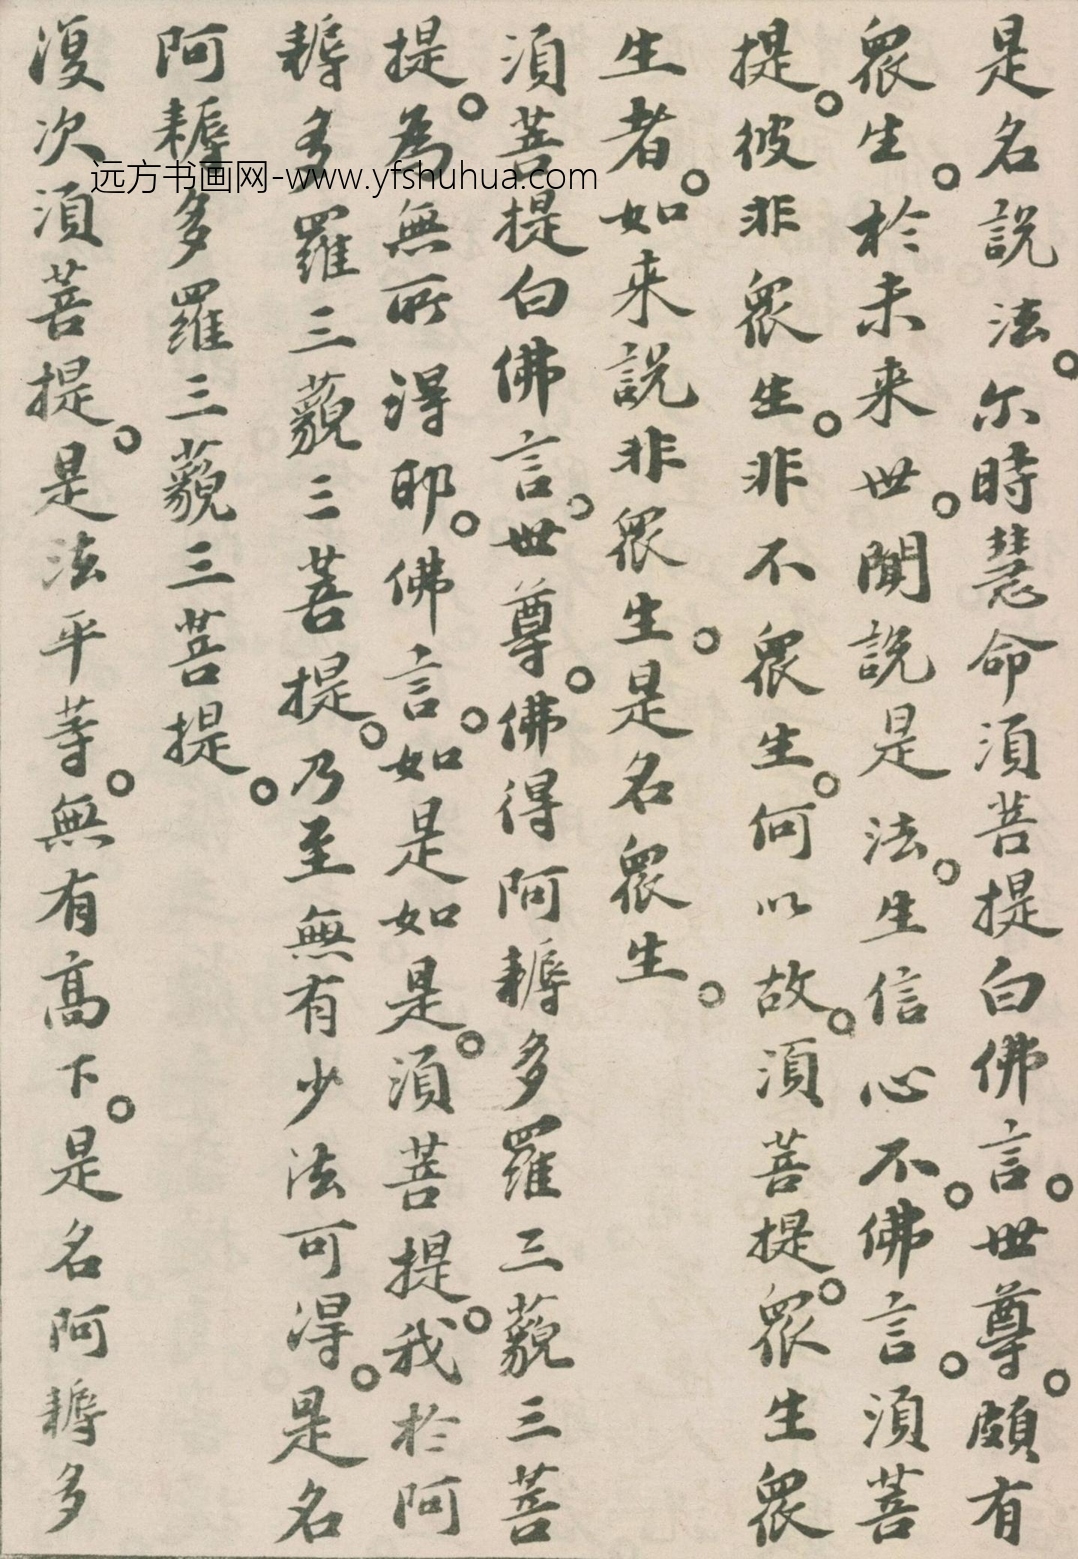 是名說法。尔時慧命須菩提白佛言。世尊。頗有
眾生。於未來世。聞說是法。生信心不。佛言。須菩
提。彼非眾生。非不眾生。何以故。須菩提。眾生眾
生者。如来說非眾生。是名眾生。
須菩提白佛言。世尊。佛得阿耨多羅三藐三菩
提。為無所得耶。佛言。如是如是。須菩提。我於阿
耨多羅三藐三菩提。乃至無有少法可得。是名
阿耨多羅三藐三菩提。
復次須菩提。是法平等。無有高下。是名阿耨多
远方书画网-www.yfshuhua.com